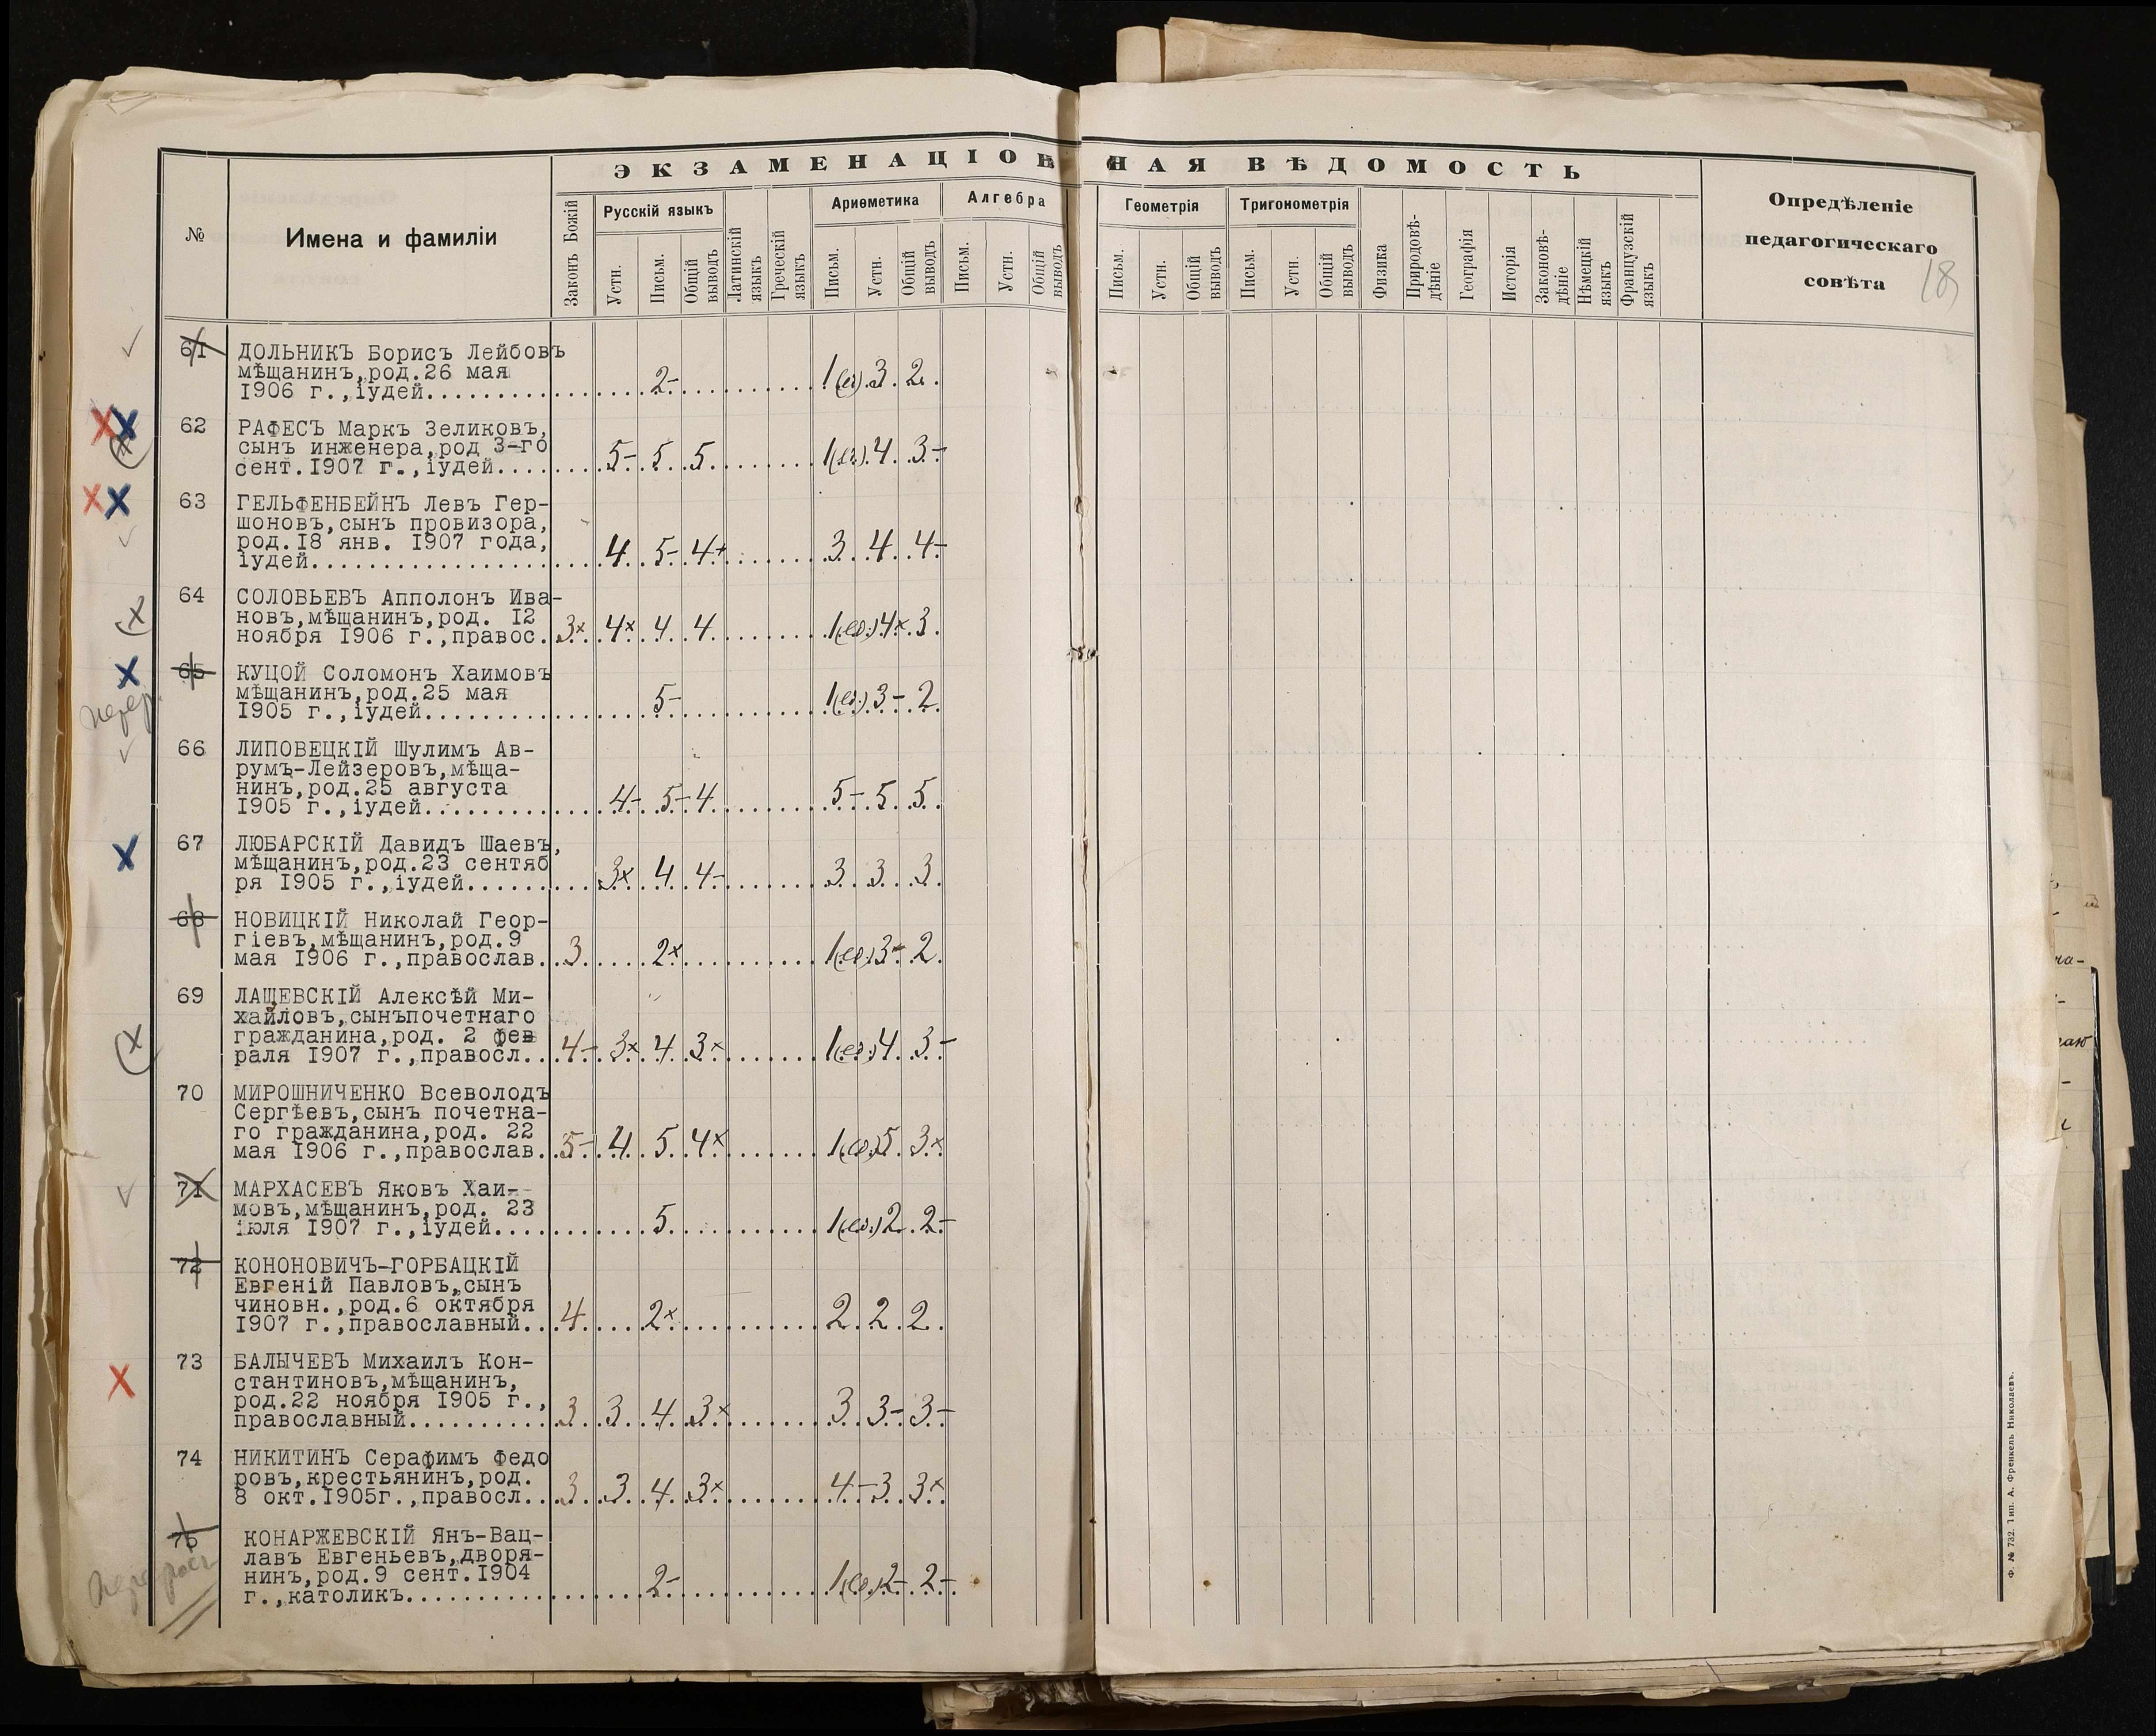 ЭКЗАМЕНАЦІОННАЯ ВѢДОМОСТЬ
№
Имена и фамиліи
Законъ Божій
Русскій языкъ
Устн.
Письм.
Общій выводъ
Латинскій языкъ
Греческій языкъ
Ариѳметика
Письм.
Устн.
Общій выводъ
Алгебра
Письм.
Устн.
Общій выводъ
Геометрія
Письм.
Устн.
Общій выводъ
Тригонометрія
Письм.
Устн.
Общій выводъ
Физика
Природовѣ-
дѣніе
Географія
Исторія
Законовѣ-
дѣніе
Нѣмецкій языкъ
Французскій языкъ
Опредѣленіе
педагогическаго
совѣта
18
61 ДОЛЬНИКЪ Борисъ Лейбовъ
мѣщанинъ,род.26 мая
1906 г.,іудей.......... 2- 1(ед). 3. 2.
62 РАФЕСЪ Маркъ Зеликовъ,
сынъ инженера,род 3-го
сент.1907 г.,іудей....... 5- 5 5 1(ед). 4. 3-
63 ГЕЛЬФЕНБЕЙНЪ Левъ Гер-
шоновъ,сынъ провизора,
род.18 янв. 1907 года,
іудей.................... 4 5- 4+ 3. 4. 4-
64 СОЛОВЬЕВЪ Апполонъ Ива-
новъ,мѣщанинъ,род. 12
ноября 1906 г.,правос. 3× 4× 4 4 1(ед:) 4× 3.
65 КУЦОЙ Соломонъ Хаимовъ
перер.
мѣщанинъ,род.25 мая
1905 г.,іудей.......... 5- 1(ед:) 3- 2.
66 ЛИПОВЕЦКІЙ Шулимъ Ав-
румъ-Лейзеровъ,мѣща-
нинъ,род.25 августа
1905 г.,іудей.......... 4- 5- 4 5- 5. 5.
67 ЛЮБАРСКІЙ Давидъ Шаевъ,
мѣщанинъ,род.23 сентяб
ря 1905 г.,іудей....... 3× 4 4- 3. 3. 3.
68 НОВИЦКІЙ Николай Геор-
гіевъ,мѣщанинъ,род.9
мая 1906 г.,православ. 3. 2× 1(ед:) 3- 2.
69 ЛАЩЕВСКІЙ Алексѣй Ми-
хайловъ,сынъпочетнаго
гражданина,род. 2 фев
раля 1907 г.,правосл.. 4- 3× 4 3× 1(ед:) 4. 3-
70 МИРОШНИЧЕНКО Всеволодъ
Сергѣевъ,сынъ почетна-
го гражданина,род. 22
мая 1906 г.,православ. 5- 4 5 4× 1(ед.) 5. 3×
71 МАРХАСЕВЪ Яковъ Хаи-
мовъ,мѣщанинъ,род. 23
іюля 1907 г.,іудей.... 5. 1(ед:) 2. 2-
72 КОНОНОВИЧЪ-ГОРБАЦКІЙ
Евгеній Павловъ,сынъ
чиновн.,род.6 октября
1907 г.,православный.. 4. 2× 2. 2. 2.
73 БАЛЫЧЕВЪ Михаилъ Кон-
стантиновъ,мѣщанинъ,
род.22 ноября 1905 г.,
православный.......... 3 3. 4. 3× 3. 3- 3-
74 НИКИТИНЪ Серафимъ Федо
ровъ,крестьянинъ,род.
8 окт.1905г.,правосл.. 3 3. 4 3× 4- 3. 3×
75 КОНАРЖЕВСКІЙ Янъ-Вац-
лавъ Евгеньевъ,дворя-
нинъ,род.9 сент.1904
г.,католикъ............ 2- 1(ед.) 2- 2-
Ф. № 732. Тип. А. Френкель Николаевъ.